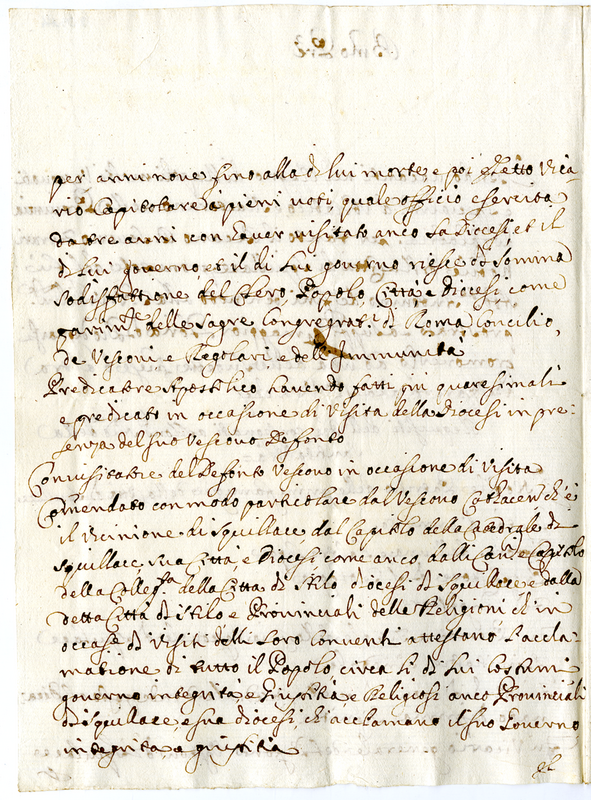 per anni nove fino alla di lui morte, e poi eletto Vica-
rio Capitolare a pieni voti, quale officio esercita
da tre anni con haver visitato anco la Diocesi, et il
di lui governo et il di lui governo riesce con somma
sodisfattione del Clero, Popolo Città, e Diocesi come
delle Sagre Congregat.i di Roma Concilio,
de Vescovi e Regolari e dell' Immunità
Predicatore Apostolico havendo fatti più quaresimali
e predicato in occasione di Visita della Diocesi in pre-
senza del suo Vescovo defonto
Convisitatore del Defonto Vescovo in occasione di Visita
Comendato con modo particolare dal Vescovo ch'è
il viciniore di Squillace dal Capitolo della Catedrale di
Squillace sua Città e Diocesi come anco dalli Can.ci e Capitolo
della Colleg.ta della Città di Stilo Diocesi di Squillace e dalla
detta Città di Stilo e Provinciali delle Religioni ch'in
occas.e di Visiti delli loro Conventi attestano l'accla-
matione di tutto il Popolo circa li di lui costumi
governo integrità, e Giustitia, e Religiosi anco Provinciali
di Squillace, e sua diocesi, ch'acclamano il suo Governo
integrità e giustitia